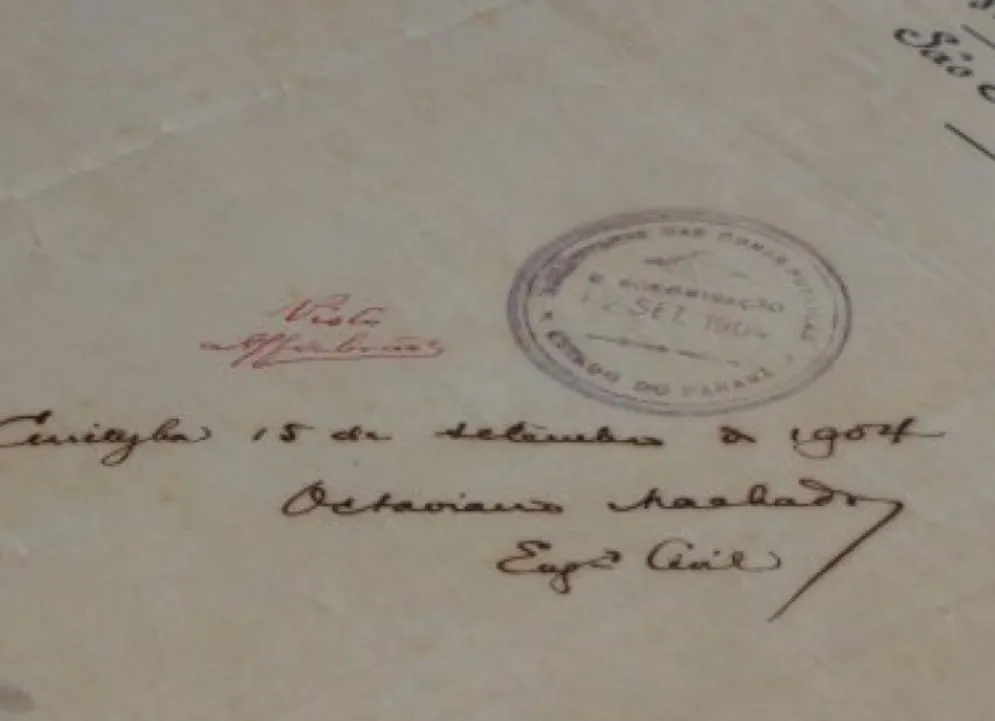 São
Visto
DAS OBRAS PUBLICAS
E COLONISAÇÃO
SET. 190
ESTADO DO PARANÁ
Curityba 15 de setembro de 1904
Octaviano Machado
Engº Civil